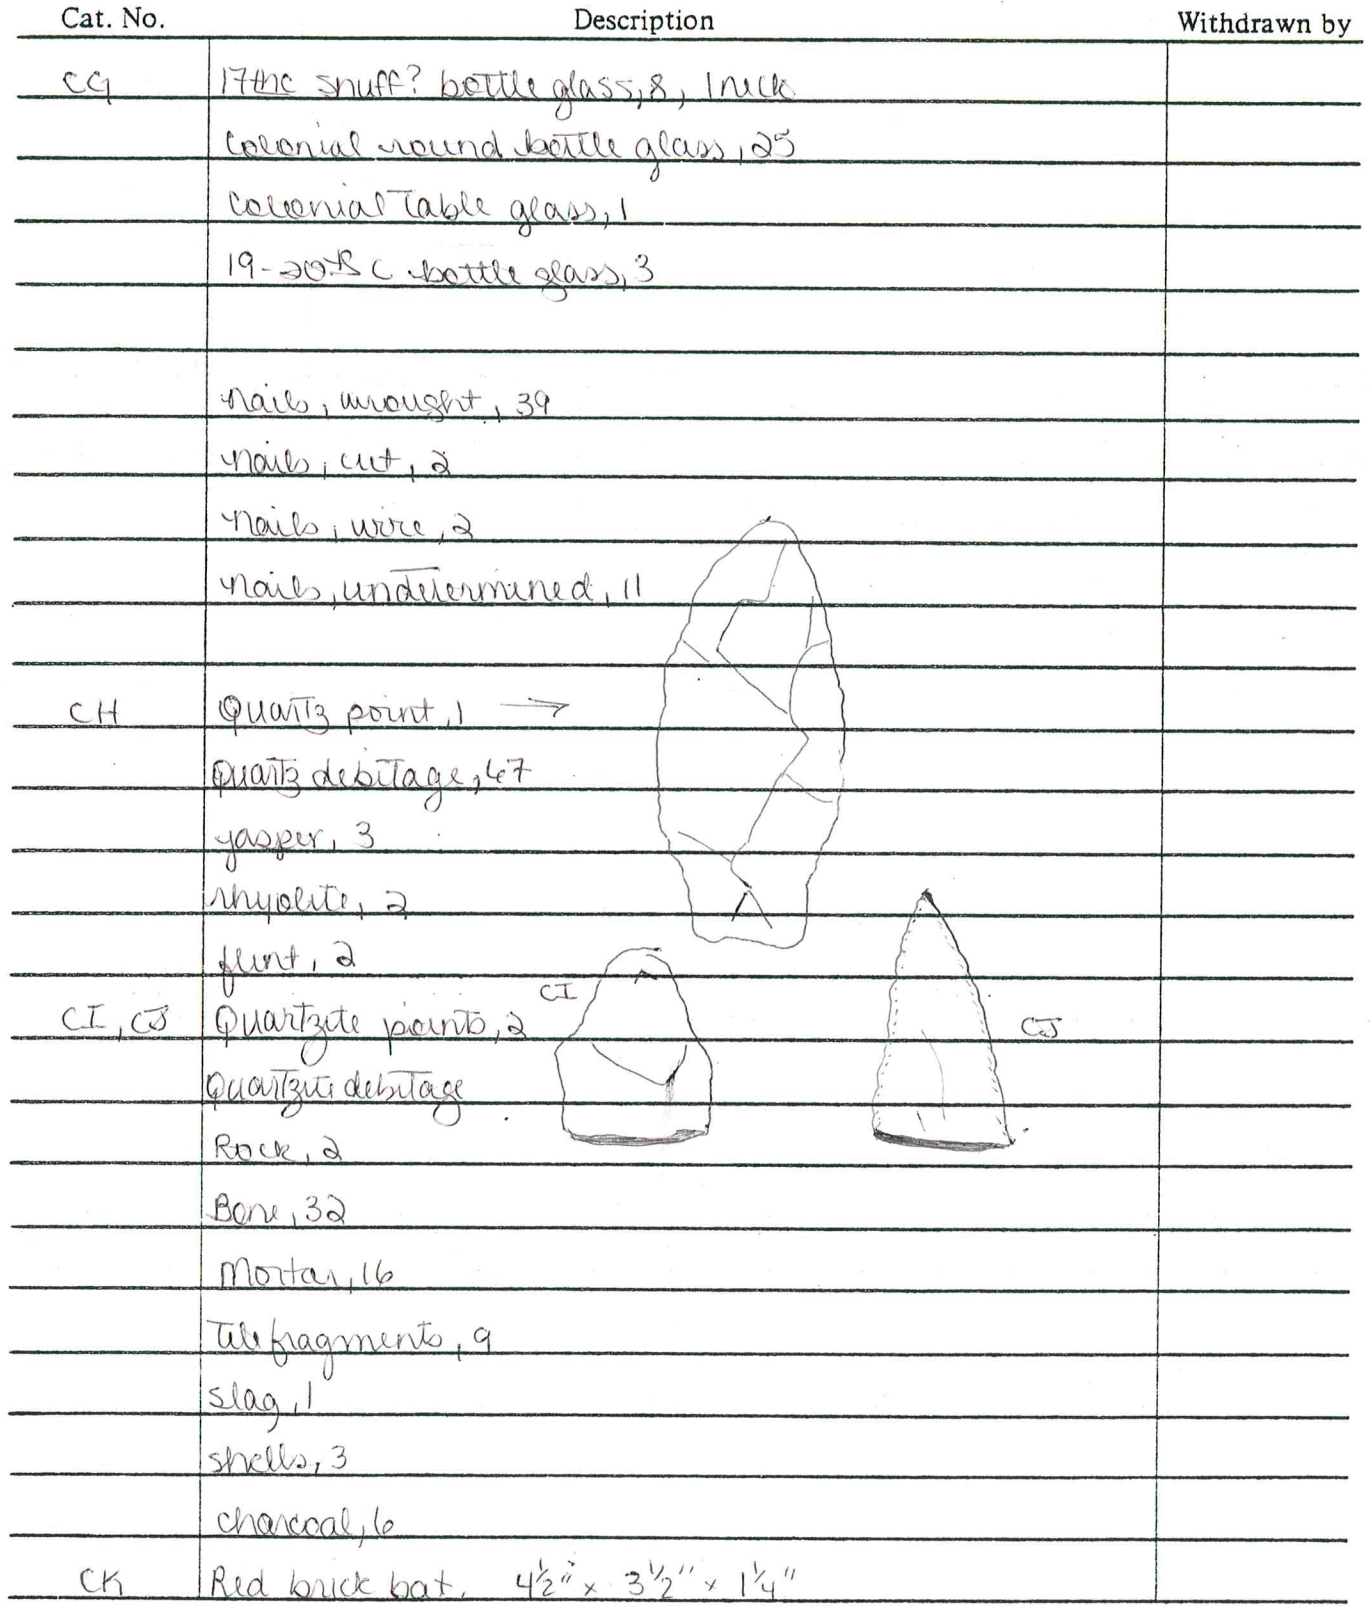 Cat. No. Description Withdrawn by
CG 17thc snuff? bottle glass, 8, 1 neck
Colonial round bottle glass, 25
Colonial Table glass, 1
19-20th C bottle glass, 3
nails, wrought, 39
nails, cut, 2
nails, wire, 2
nails, undetermined, 11
CH Quartz point, 1 →
Quartz debitage, 67
jasper, 3
rhyolite, 2
flint, 2
CI
CI, CJ Quartzite points, 2 CJ
Quartzite debitage
Rock, 2
Bone, 32
Mortar, 16
Tile fragments, 9
slag, 1
shells, 3
charcoal, 6
CK Red brick bat. 4½" x 3½" x 1¼"